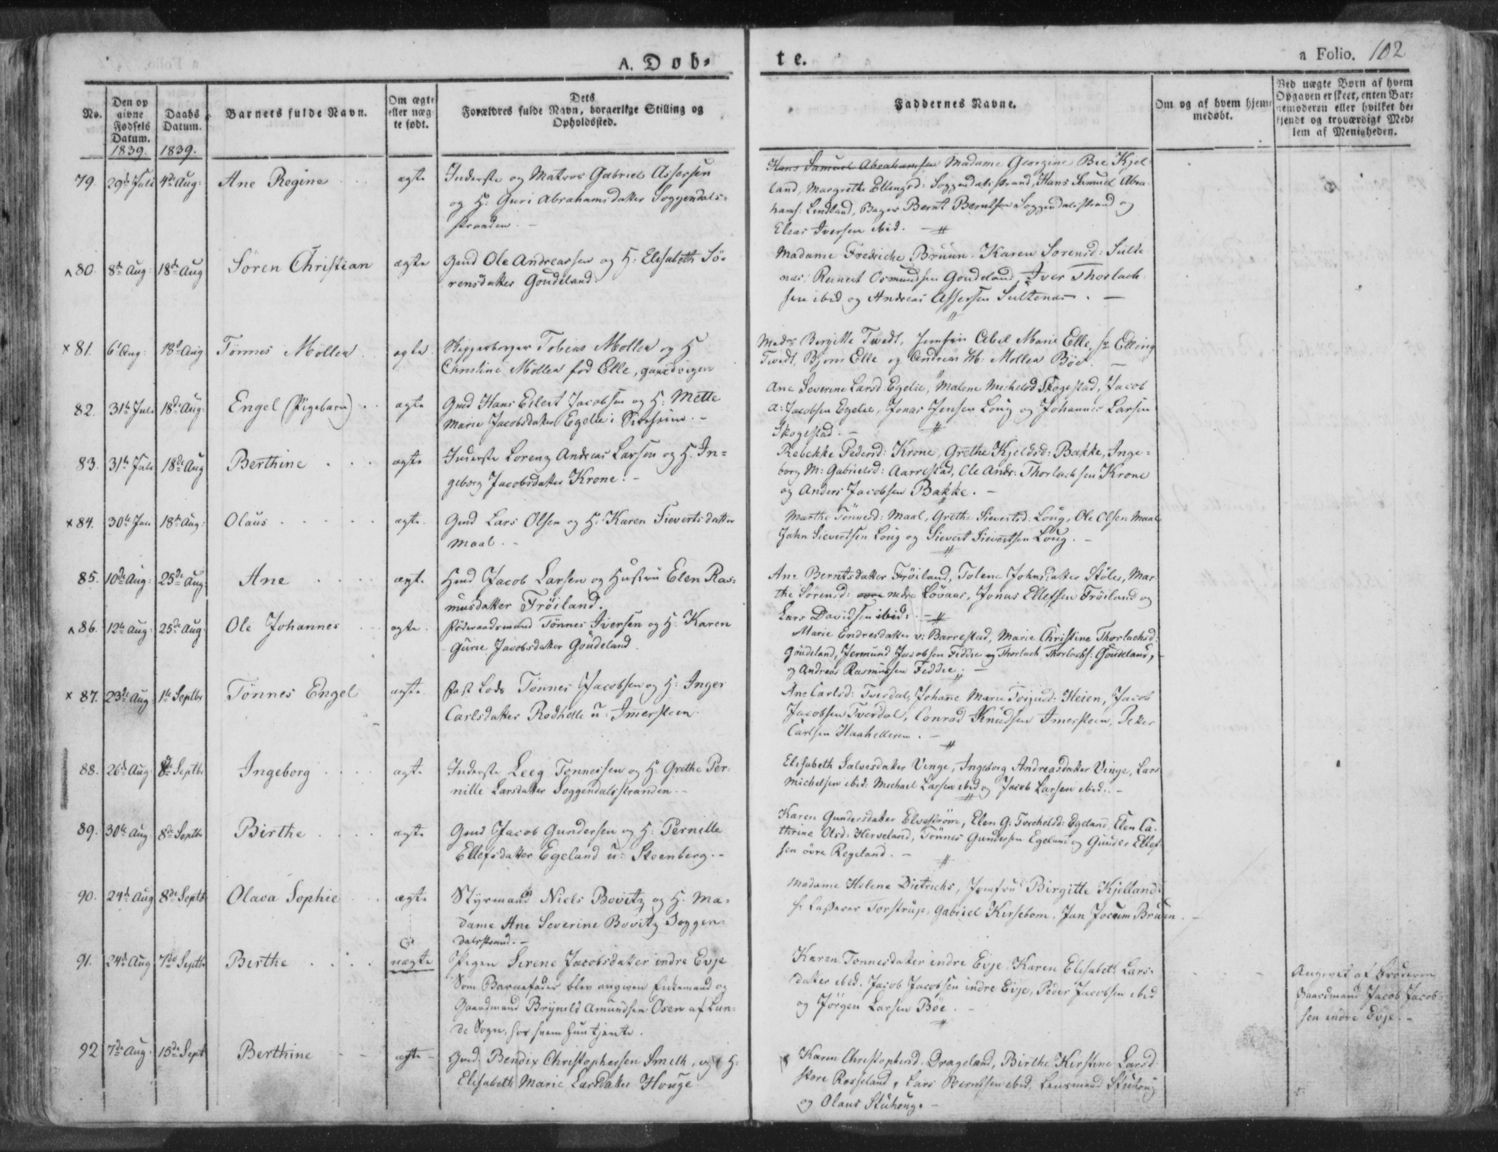 A. Døb-
te.
a Folio. 102
No.
Den op
givne
Fødsels
Datum.
1839.
Daabs
Datum.
1839.
Barnets fulde Navn.
Om ægte
eller uæg
te født.
Dets
Forældres fulde Navn, borgerlige Stilling og
Opholdssted.
Faddernes Navne.
Om og af hvem hjem
medøbt.
Ved uægte Børn af hvem
Opgaven er skeet, enten Bar-
nemoderen eller hvilket be-
kjendt og troværdigt Med-
lem af Menigheden.
79. 29de Juli 4de Aug: Ane Regine ægte
Inderste og Matros Gabriel Assersen
og H: Guri Abrahamsdatter Soggendals-
stranden. -
Hans Samuel Abrahamsen Madame Georgine Bee Kjel
land, Margrethe Ellingsd: Soggendalsstrand, Hans Samuel Abra
hams: Lindland, Bager Bernt Berntsen Soggendalsstrand og
Elias Iversen ibid.
80 8de Aug. 18de Aug Søren Christian ægte
Gmd Ole Andreassen og H: Elisabeth Sø-
rensdatter Goudeland.
Madame Fredriche Bruun. Karen Sørensd: Sulte
nes: Reinert Osmundsen Goudeland, Iver Thorlach
sen ibid og Andreas Assersen Sultenes. -
× 81. 6te Aug: 18de Aug Tønnes Møller ægte
Skipperborger Tobias Møller og H
Christine Møller fød Elle,
Tvedt, Bjørn Elle og Andreas Møller Bøe.
82. 31te Juli 18de Aug. Engel (Pigebarn) ægte
Gmd Hans Eilert Jacobsen og H: Mette
Marie Jacobsdatter Egelie i
Ane Severine Larsd Egelie, Malene Michelsd Skogestad, Jacob
A: Jacobsen Egelie, Jonas Jensen Løug og Johannes Larsen
Skogestad. -
83. 31te Juli 18de Aug Berthine ægte
Inderste Lorentz Andreas Larsen og H. In=
geborg Jacobsdatter Krone. -
Rebekke Pedersd: Krone, Grethe Kjeldsd: Bakke, Inge-
borg M: Gabrielsd: Aarrestad, Ole Andr: Thorlachsen Krone
og Anders Jacobsen Bakke. -
× 84. 30te 18de Aug: Olaus ægte
Gmd Lars Olsen og H. Karen Sievertsdatter
Maal. -
Marthe Tønnesd: Maal, Grethe Sievertsd: Løug, Ole Olsen Maal
John Sievertsen Løug og Sievert Sievertsen Løug. -
85. 10de Aug: 25de Aug: Ane ægte
Gmd Jacob Larsen og Hustru Elen Ras-
musdatter Frøiland.
Ane Berntsdatter Frøiland, Tolene Johnsdatter Støle, Mar
the Sørensd: nedre Løvaas, Jonas Ellefsen Frøiland og
Lars Davidsen ibid:
86. 12te Aug: 25de Aug: Ole Johannes ægte
Tønnes Iversen og H: Karen
Gurie Jacobsdatter Goudeland
Marie Endresdatter v: Barrestad, Marie Christine Thorlachsd:
Goudeland, Jermund Jacobsen Feddie og Thorlach Thorlachs: Goudeland,
og Andreas Rasmussen Feddie; -
× 87. 23de Aug 1te Septbr Tønnes Engel ægte
Tønnes Jacobsen og H: Inger
Carlsdatter Rødhelle u: Imersteen.
Ane Carlsd: Tverdal, Johane Marie Heien, Jacob
Jacobsen Tverdal, Conrad Knudsen Imersteen, Peter
Carlsen Haahelleren. -
88. 26de Aug: 8de Septbr Ingeborg ægte
Inderste Leeg Tønnessen og H: Grethe Per-
nille Larsdatter Soggendalsstranden. -
Elisabeth Salvesdatter Vinge, Ingeborg Andreasdatter Vinje, Lars
Michelsen ibid. Michael Larsen ibid og Jacob Larsen ibid: -
89. 30te Aug: 8de Septbr Birthe ægte
Gmd Jacob Gundersen og H: Pernelle
Ellefsdatter Egeland u: Steenberg. -
Karen Gundersdatter Elvestrøm, Elen G: Torkelsd: Egeland, Elen Ca-
thrine Olsd: Herveland, Tønnes Gundersen Egeland og Gunder Ellef
sen øvre Regeland. -
90. 24de Aug 8de Septb Olava Sophie ægte
Styrmand Niels Bovitz og H. Ma-
dame Ane Severine Bovitz Soggen-
dalsstrand. -
Madame Helene Dietrichs, Jomfru Birgitte Kjelland:
Torstrup, Gabriel Kirsebom, Jan Jocum Bruun. -
91. 24de Aug 7de Septbr Birthe uægte
Pigen Serene Jacobsdatter indre Evje
Som Barnefader blev angiven Enkemand og
Gaardmand Brynild Amundsen Osen af Lun-
de Sogn, hos hvem hun tjente.
Karen Tønnesdatter indre Evje. Karen Elisabeth Lars-
datter ibid. Jacob Jacobsen indre Evje, Peder Jacobsen ibid
og Jørgen Larsen Bøe. -
Angivet af Broderen
Gaardmand Jacob Jacob-
sen indre Evje. -
92 7de Aug. 15de Sept Berthine ægte
Gmd. Bendix Christophersen Smith, og H.
Elisabeth Marie Larsdatter Houge
Karen Christophersd. Drageland, Birthe Kirstine Larsd
store Rosseland, Lars Berntsen ibid, Lensmand Stuhoug
og Olaus Stuhoug. -